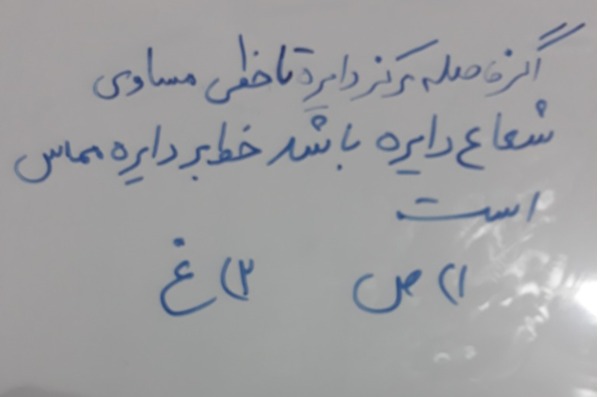 اگر فاصله مرکز دایرة تا خطی مساوی
شعاع دایره باشد خط بر دایره مماس
است
۱) ص ۲) غ